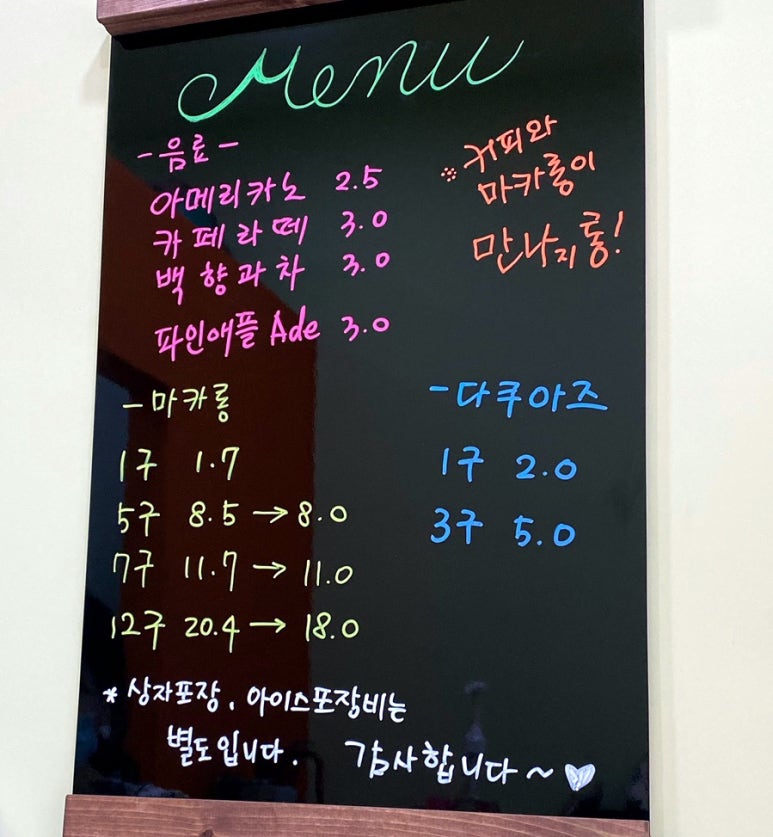 Menu
- 음료 -
아메리카노 2.5
카페라떼 3.0
백향과차 3.0
파인애플 Ade 3.0
※ 커피와
마카롱이
만나지롱!
- 마카롱
1구 1.7
5구 8.5 → 8.0
7구 11.7 → 11.0
12구 20.4 → 18.0
- 다쿠아즈
1구 2.0
3구 5.0
* 상자포장, 아이스포장비는
별도입니다. 감사합니다~♡